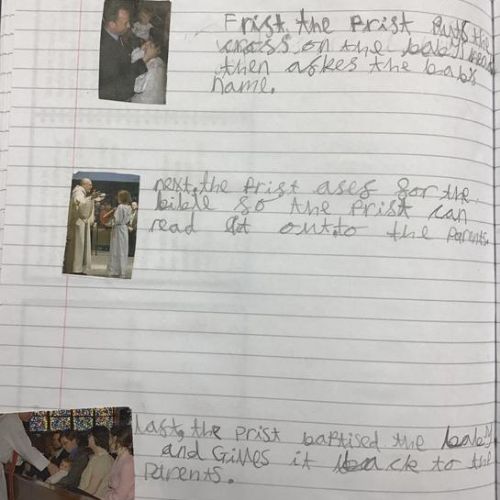 Frist, the Prist Puts the
cross on the baby head
then askes the babs
name.
next, the Prist ases for the
bible so the Prist can
read it out.to the Parents.
Last, the Prist baptised the baby
and Gives it back to the
Parents.